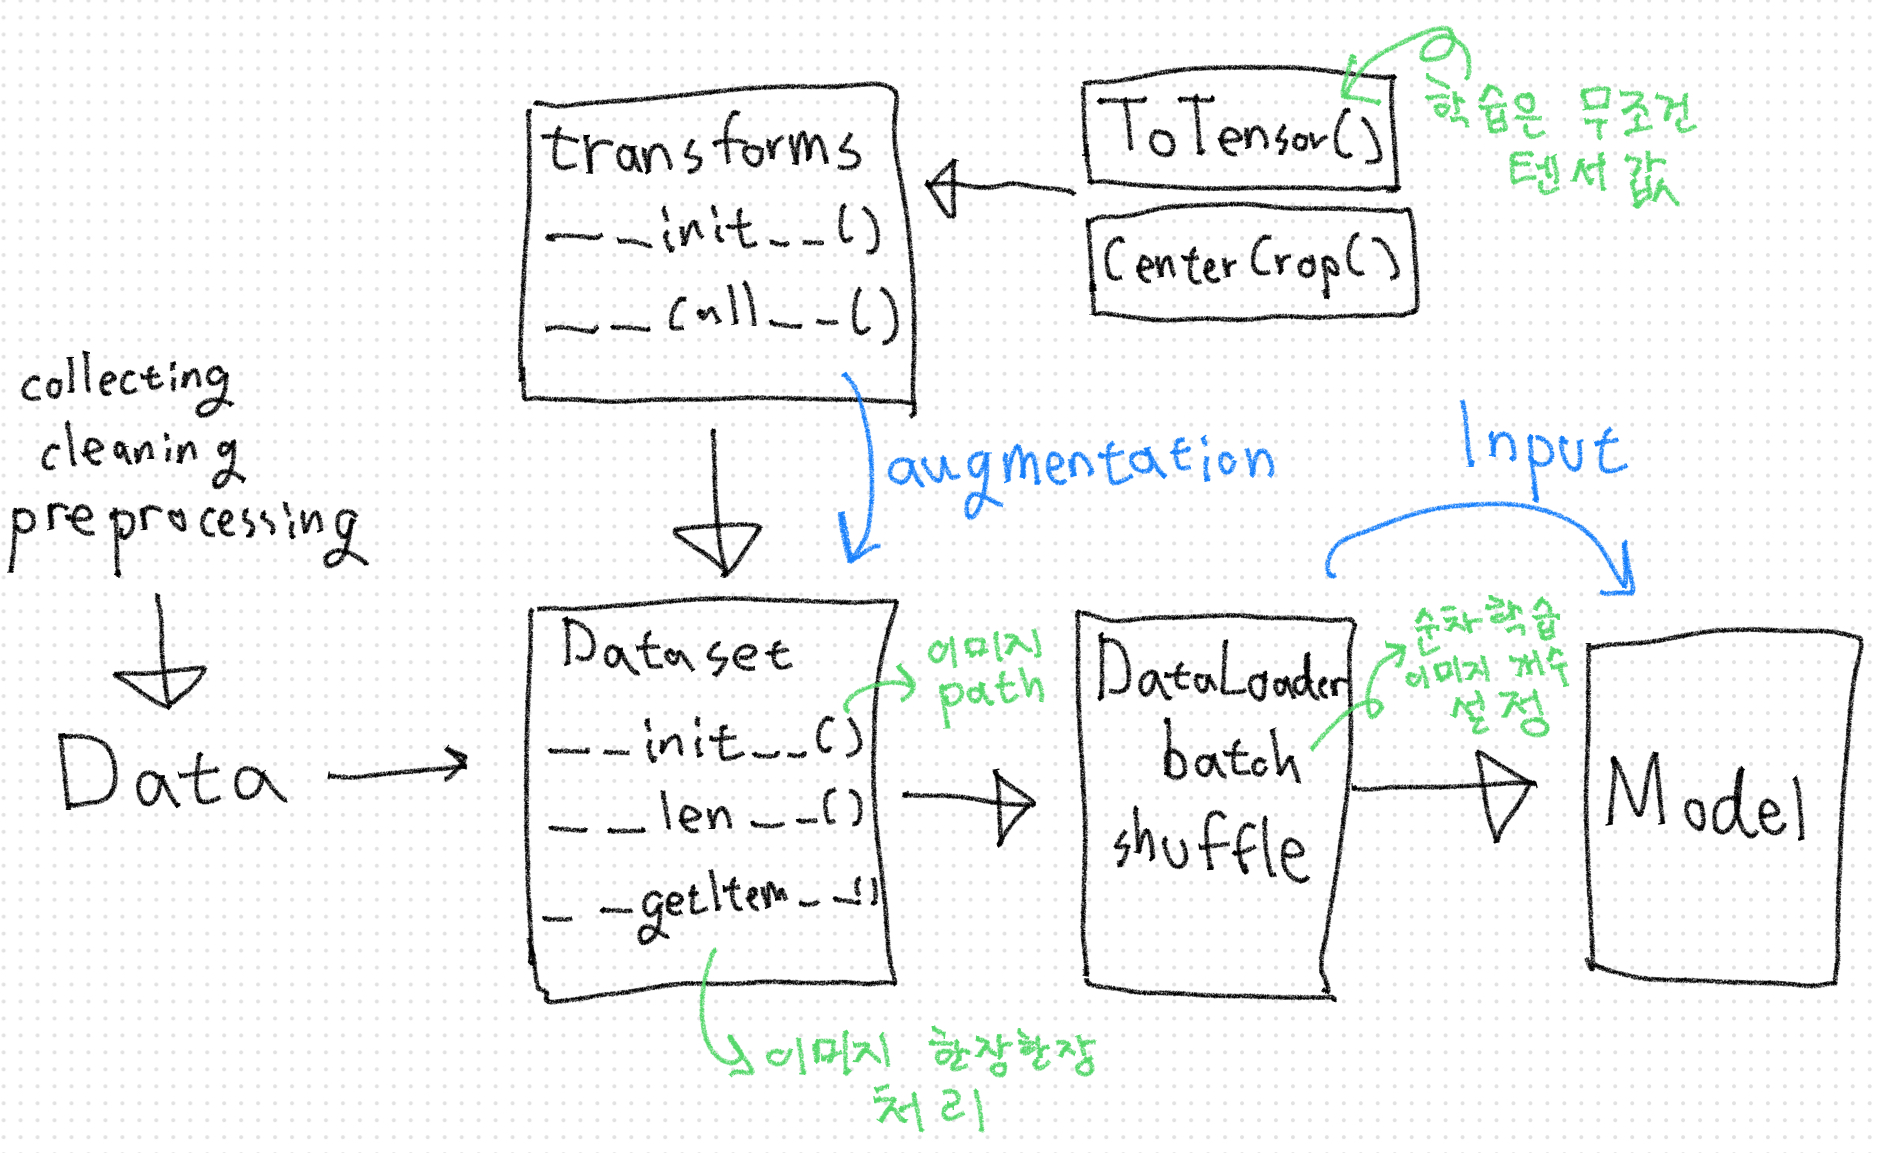 transforms
__init__()
__call__()
ToTensor()
CenterCrop()
학습은 무조건
텐서 값
collecting
cleaning
preprocessing
augmentation
Input
Data
Dataset
__init__()
__len__()
__getItem__()
이미지
path
이미지 한장한장
처리
DataLoader
batch
shuffle
순차학습
이미지 개수
설정
Model